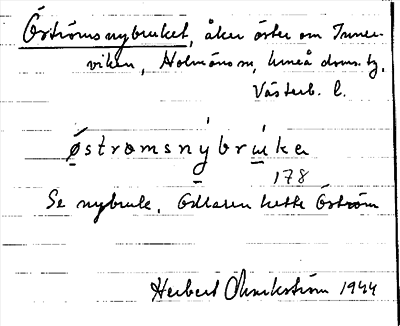 Öströmsnybruket, åker öster om Inner-
viken, Holmöns sn, Umeå doms. tg,
Västerb. l.
østromsnýbrúka
178
Se nybruk. Odlaren hette Öström
Herbert Okvikström 1944